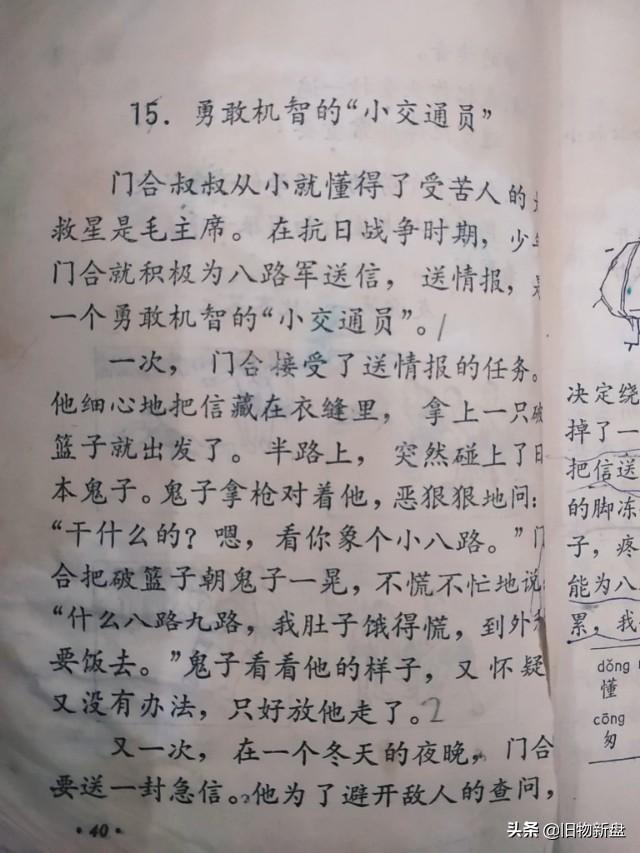 15. 勇敢机智的“小交通员”
门合叔叔从小就懂得了受苦人的
救星是毛主席。在抗日战争时期，少
门合就积极为八路军送信，送情报，
一个勇敢机智的“小交通员”。1
一次，门合接受了送情报的任务。
他细心地把信藏在衣缝里，拿上一只破
篮子就出发了。半路上，突然碰上了日
本鬼子。鬼子拿枪对着他，恶狠狠地问：
“干什么的？嗯，看你象个小八路。”门
合把破篮子朝鬼子一晃，不慌不忙地说
“什么八路九路，我肚子饿得慌，到外
要饭去。”鬼子看看他的样子，又怀疑
又没有办法，只好放他走了。2
又一次，在一个冬天的夜晚，门合
要送一封急信。他为了避开敌人的查问，
·40·
决定绕
掉了一
把信送
的脚冻
子，疼
能为八
累，我
dǒng
懂
cōng
匆
头条 @旧物新盘